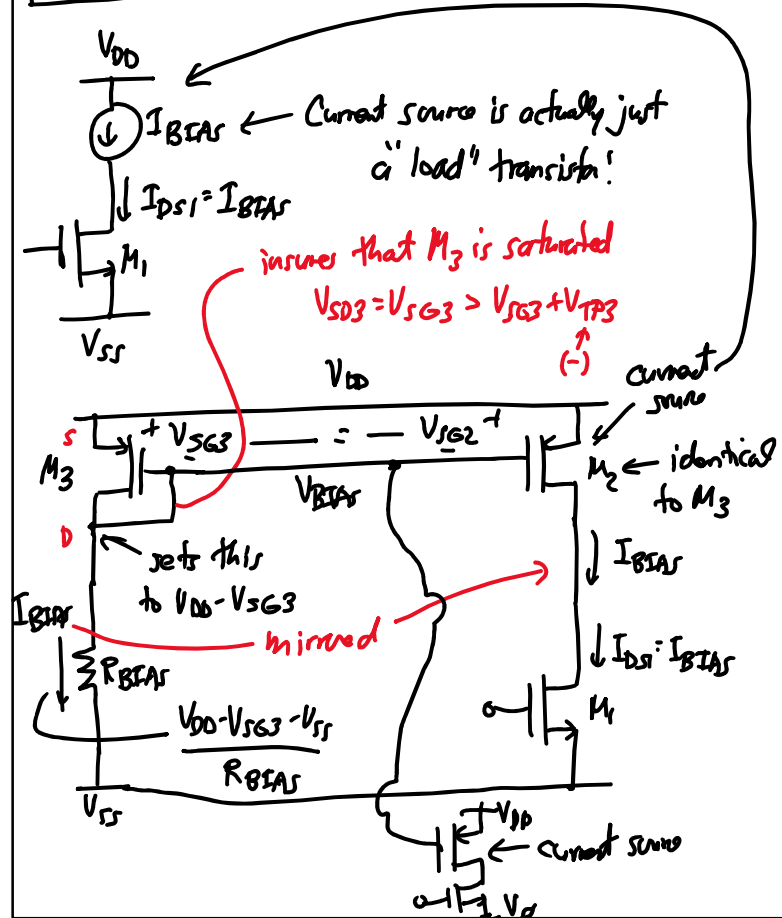 V_DD
I_BIAS ← Current source is actually just
a "load" transistor!
I_DS1 = I_BIAS
M_1
V_SS
insures that M_3 is saturated
V_SD3 = V_SG3 > V_SG3 + V_TP3
(-)
V_DD
current
source
S
+ V_SG3 - = - V_SG2 +
M_3
V_BIAS
M_2 ← identical
to M_3
D
sets this
to V_DD - V_SG3
I_BIAS
I_BIAS
mirrored
R_BIAS
I_DS1 = I_BIAS
M_1
V_DD - V_SG3 - V_SS
R_BIAS
V_SS
V_DD
current source